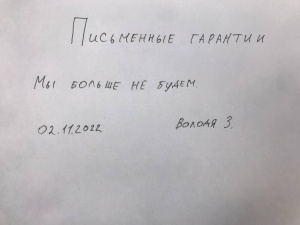 Письменные гарантии
Мы больше не будем.
02.11.2022 Володя З.